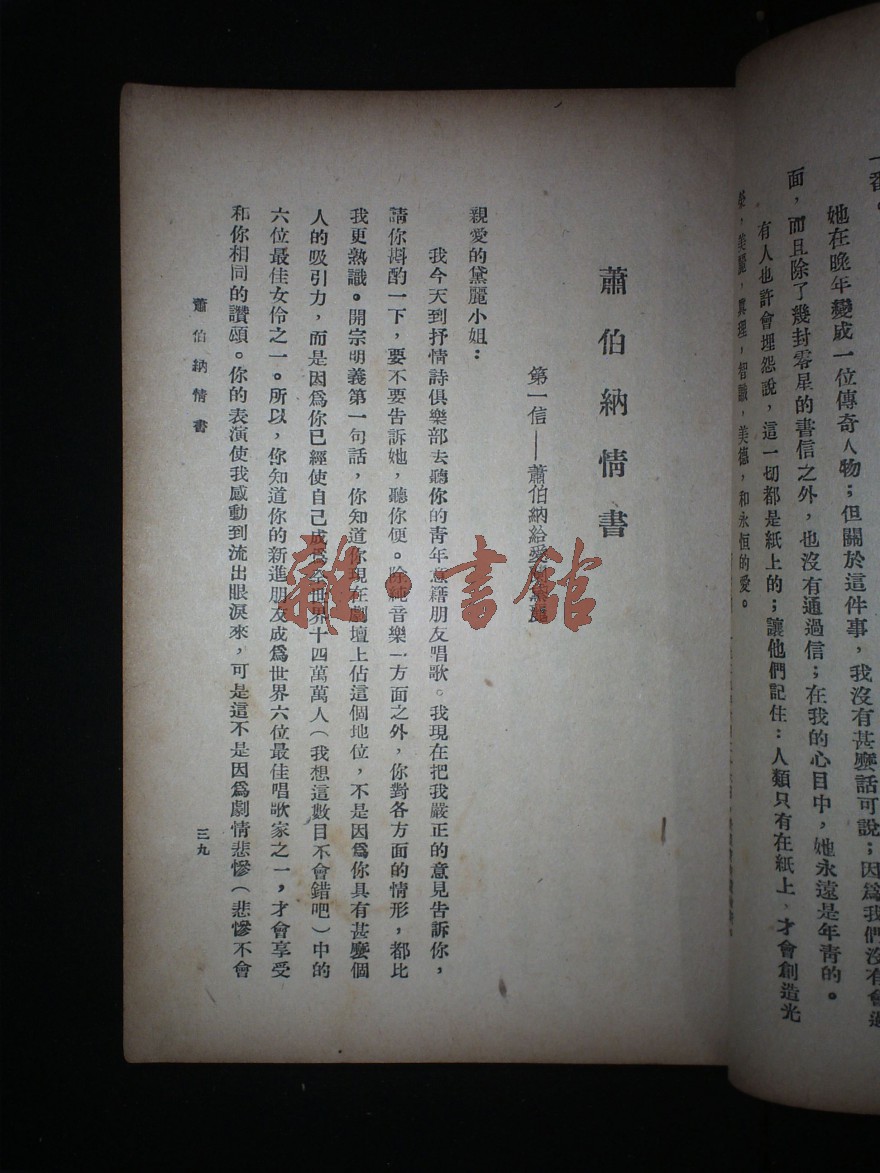 一番。
她在晚年變成一位傳奇人物；但關於這件事，我沒有甚麼話可說；因爲我們沒有會過
面，而且除了幾封零星的書信之外，也沒有通過信；在我的心目中，她永遠是年靑的。
有人也許會埋怨說，這一切都是紙上的；讓他們記住：人類只有在紙上，才會創造光
榮，美麗，眞理，智識，美德，和永恒的愛。
蕭伯納情書
第一信——蕭伯納給愛蘭黛麗
親愛的黛麗小姐：
我今天到抒情詩俱樂部去聽你的靑年意籍朋友唱歌。我現在把我嚴正的意見告訴你，
請你斟酌一下，要不要告訴她，聽你便。除純音樂一方面之外，你對各方面的情形，都比
我更熟識。開宗明義第一句話，你知道你現在劇壇上佔這個地位，不是因爲你具有甚麼個
人的吸引力，而是因爲你已經使自己成爲全世界十四萬萬人（我想這數目不會錯吧）中的
六位最佳女伶之一。所以，你知道你的新進朋友成爲世界六位最佳唱歌家之一，才會享受
和你相同的讚頌。你的表演使我感動到流出眼淚來，可是這不是因爲劇情悲慘（悲慘不會
蕭伯納情書
三九
雜·書館